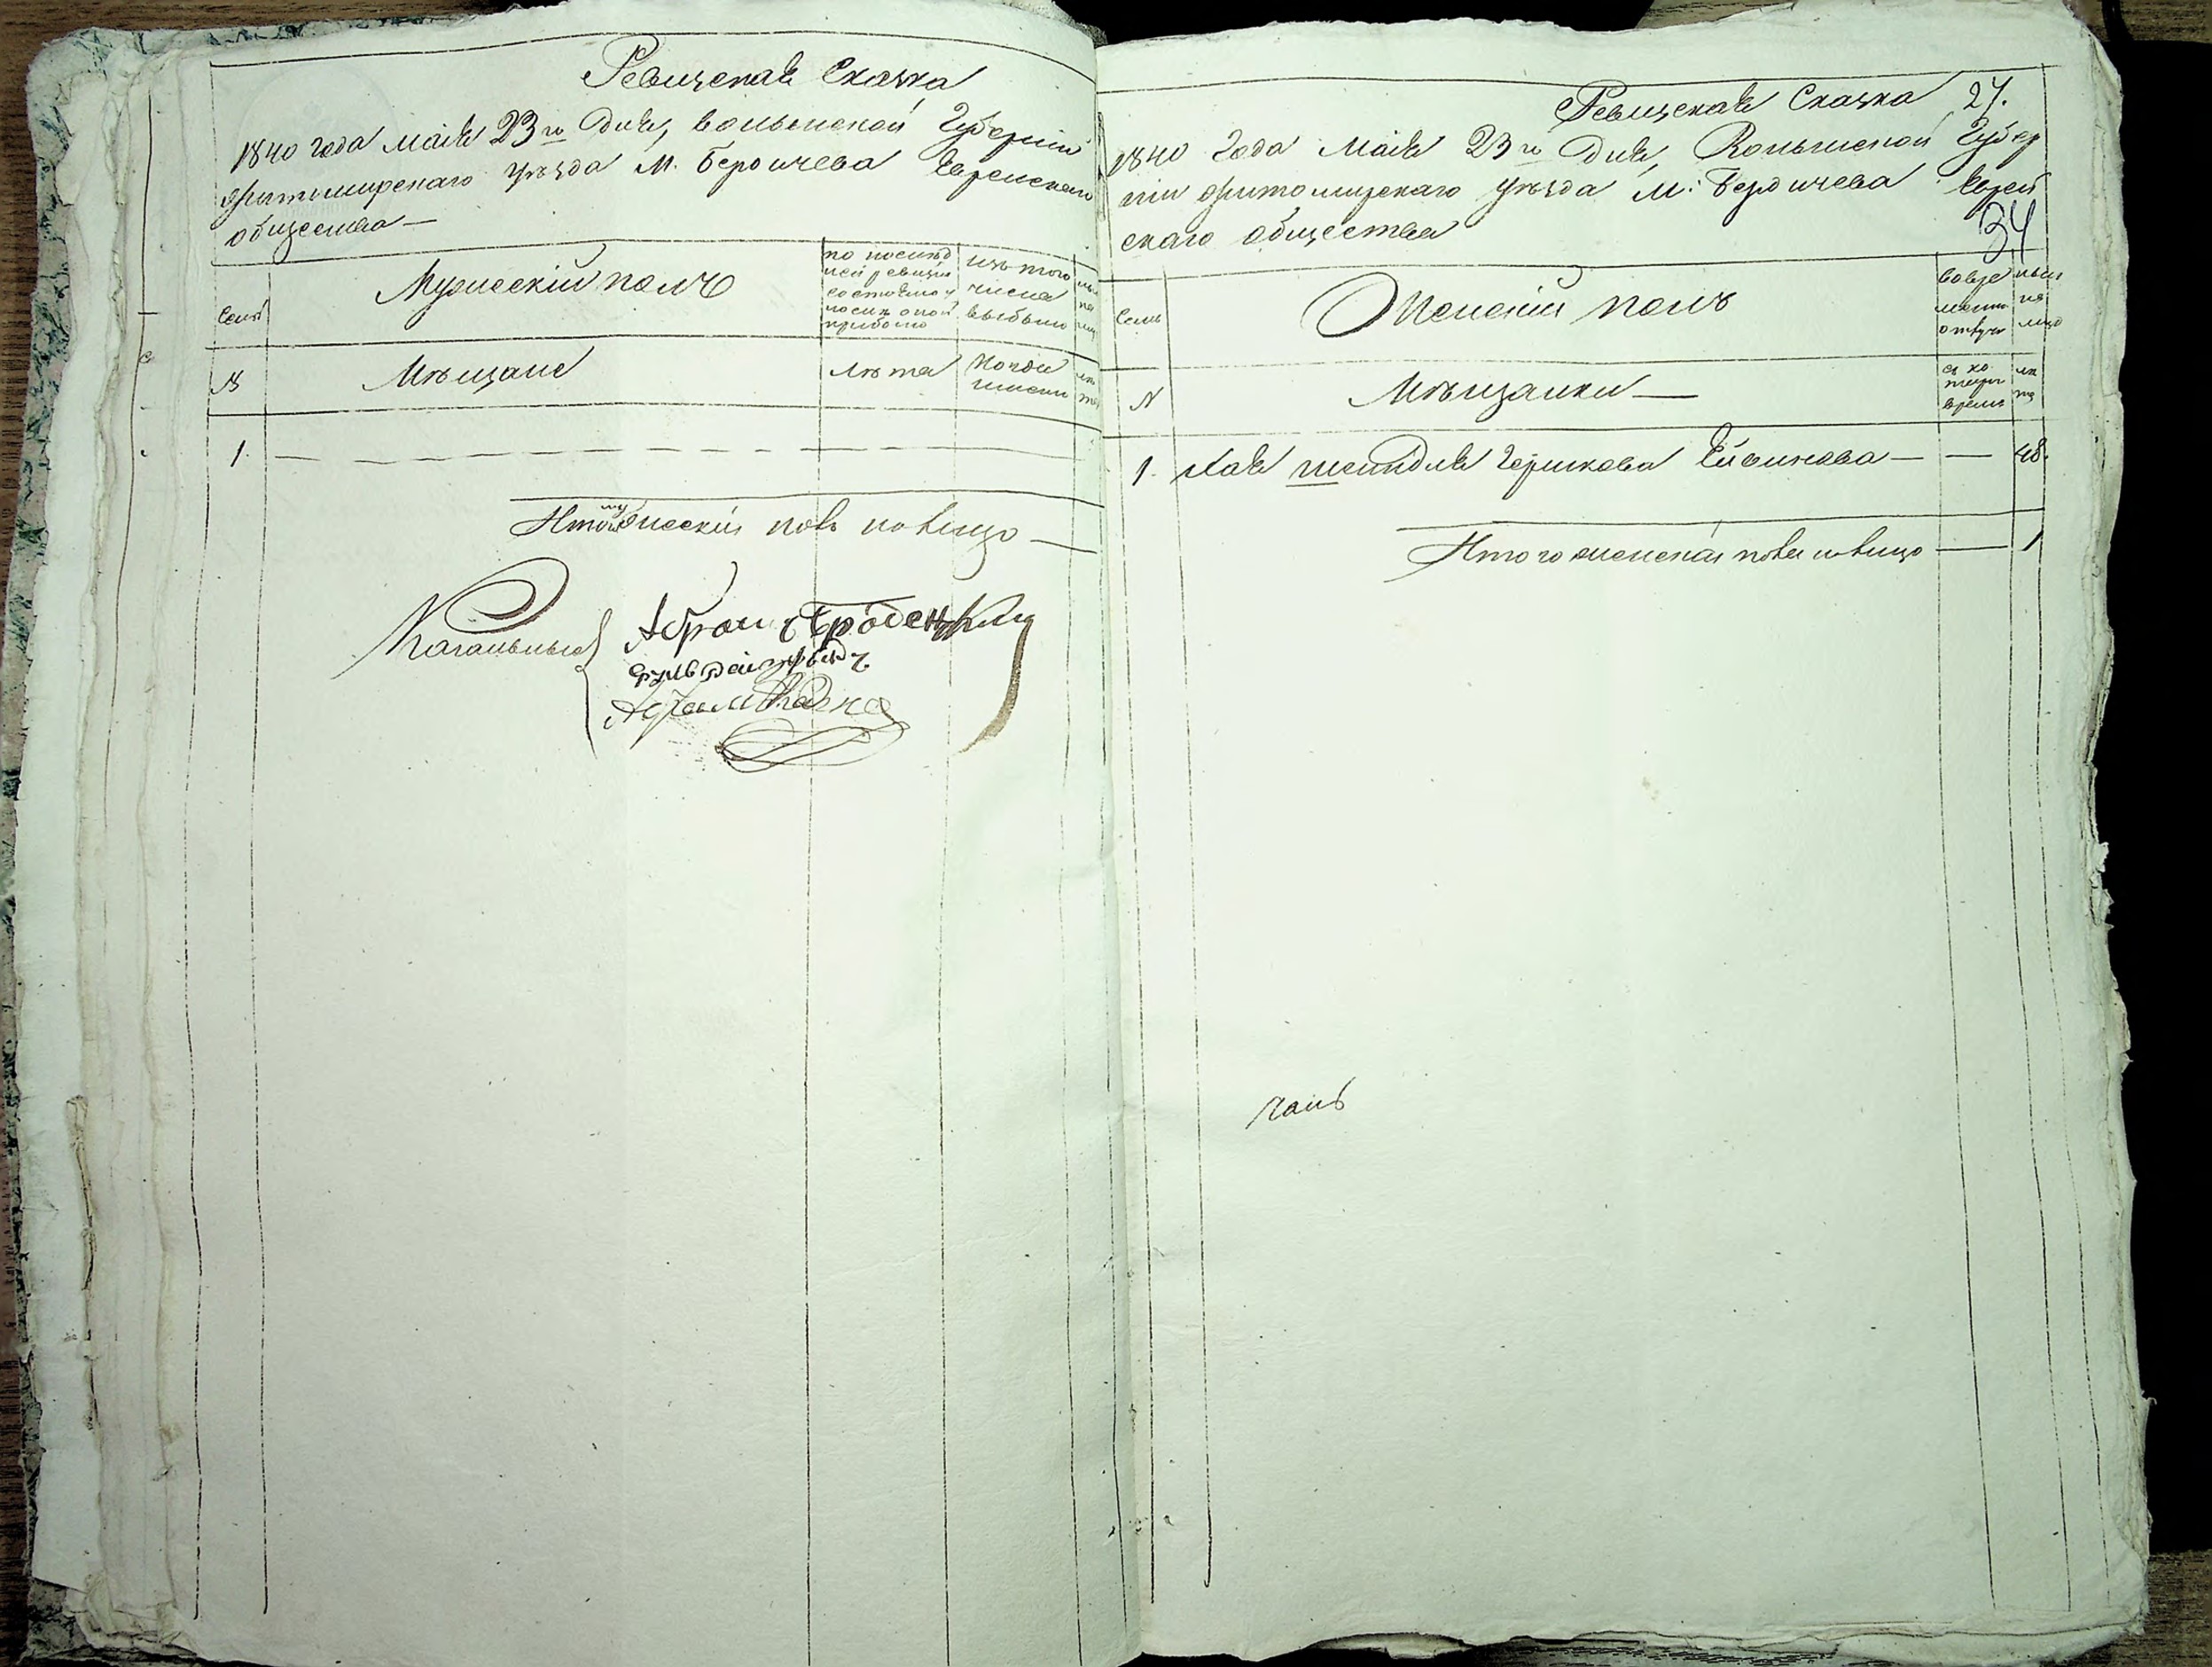 Ревизская Сказка
1840 года Маія 23го Дня, волынской Губерніи
Житомирскаго уѣзда М. Бердичева Еврейскаго
общества —
Семьи
Мужескій полъ
по послѣд
ней ревизіи
состояло и
послѣ оной
прибыло
изъ того
числа
выбыло
№
Мѣщане
лѣта
Когда
именно
лѣ
та
1.
Итого мужеска пола на лицо —
Кагальные
Абрам Бродецкий
Ревизская Сказка 27.
1840 Года Маія 23го Дня, Волынской Губер
ніи Житомирскаго уѣзда М: Бердичева Еврей
скаго общества
34
Семьи
Женскій полъ
во вре
менной
отлучк
нын
на
лицо
№
Мѣщанки —
съ ко
тораго
время
лѣ
та
1. Хая шендля Гершкова — — 48.
Итого женска пола на лицо — 1